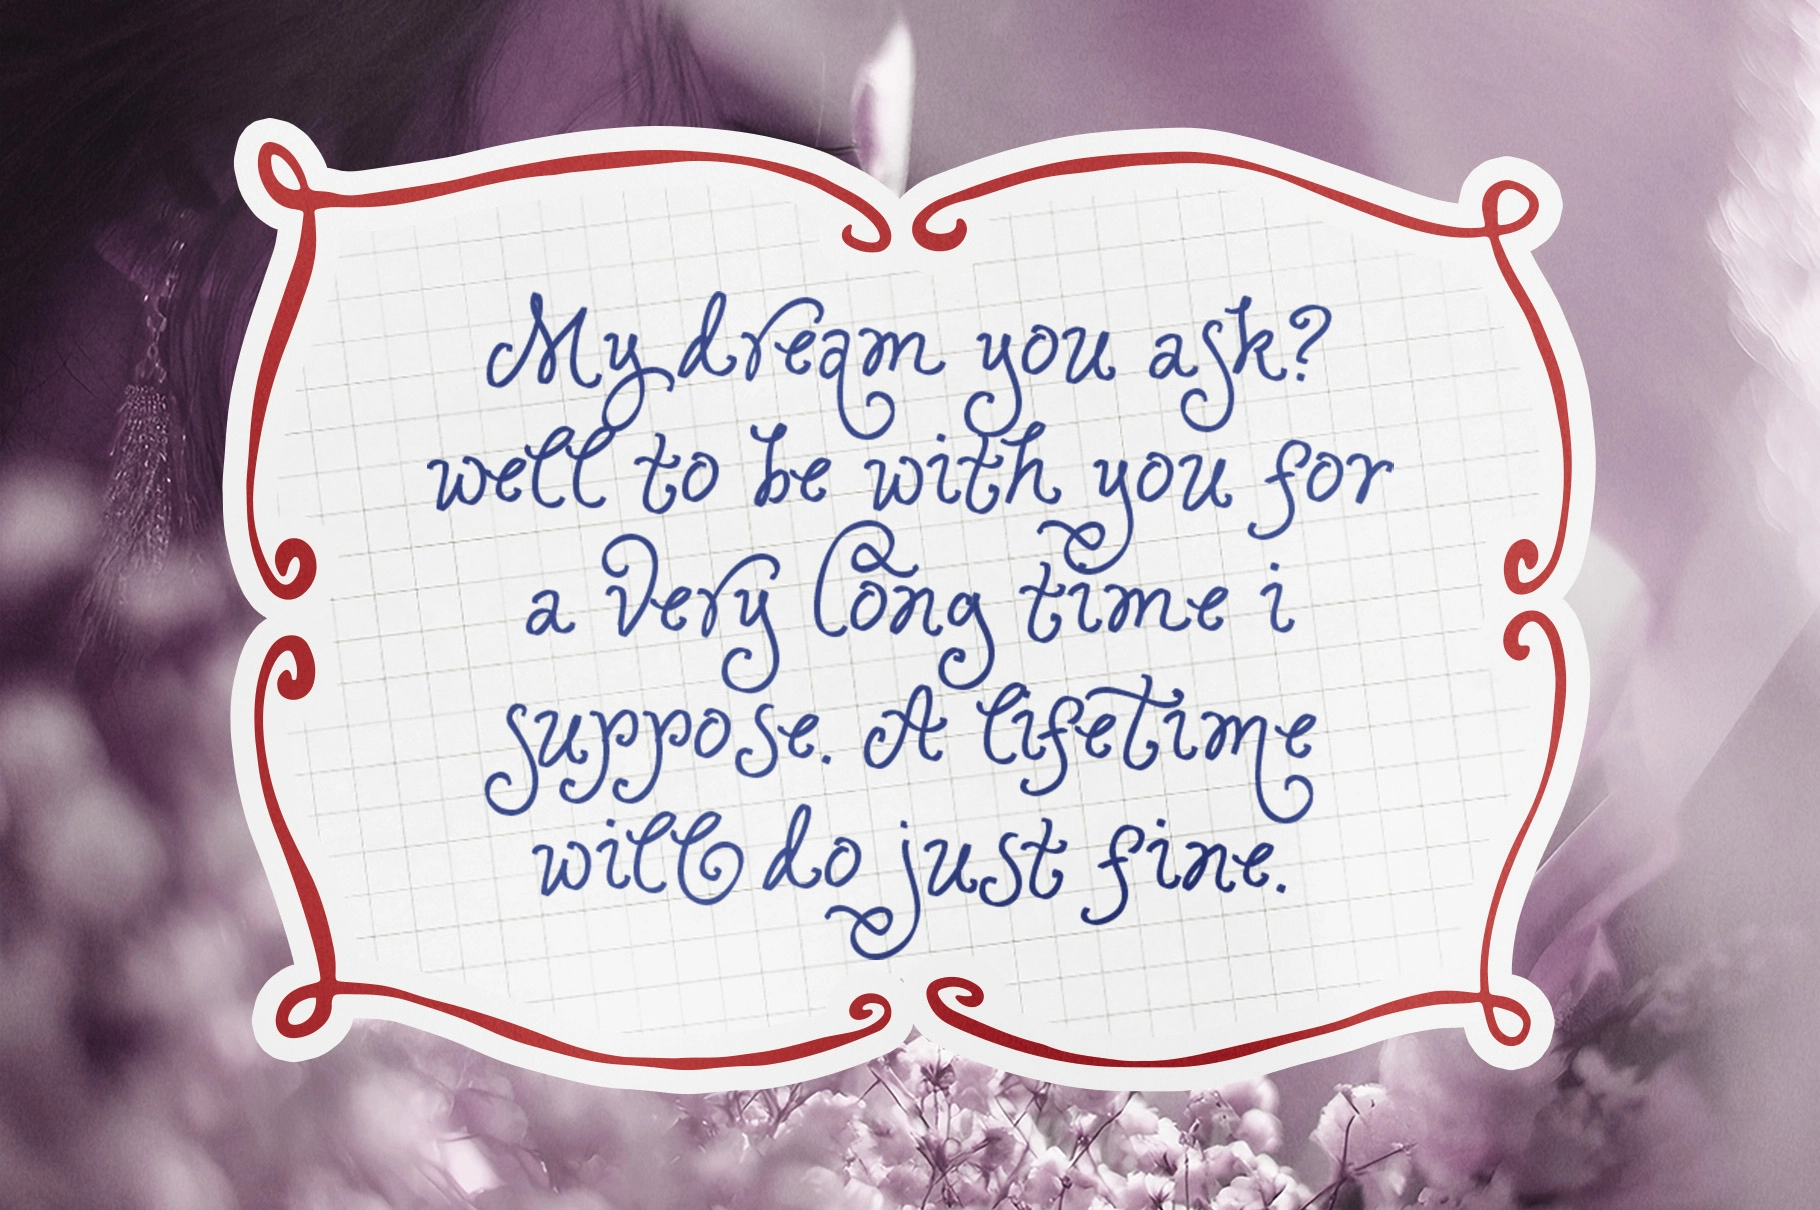 My dream you ask?
well to be with you for
a very long time i
suppose. A lifetime
will do just fine.